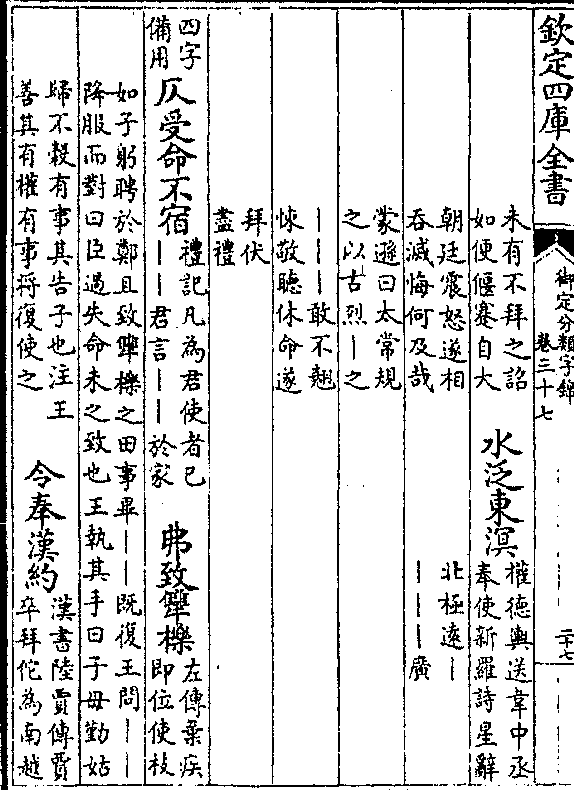 欽定四庫全書
御定分類字錦
卷三十七
二十七
未有不拜之詔
如便偃蹇自大
朝廷震怒遂相
吞滅悔何及哉
蒙遜曰太常規
之以古烈丨之
丨丨丨敢不翹
悚敬聽休命遂
拜伏
盡禮
水泛東溟
權德輿送韋中丞
奉使新羅詩星辭
北極遠丨
丨丨丨廣
四字
備用
仄受命不宿
禮記凡為君使者已
丨丨君言丨丨於家
弗致犨櫟
左傳棄疾
即位使枝
如子躬聘於鄭且致犨櫟之田事畢丨丨既復王問丨丨
降服而對曰臣過失命未之致也王執其手曰子毋勤姑
歸不穀有事其告子也注王
善其有權有事将復使之
令奉漢約
漢書陸賈傳賈
卒拜佗為南越